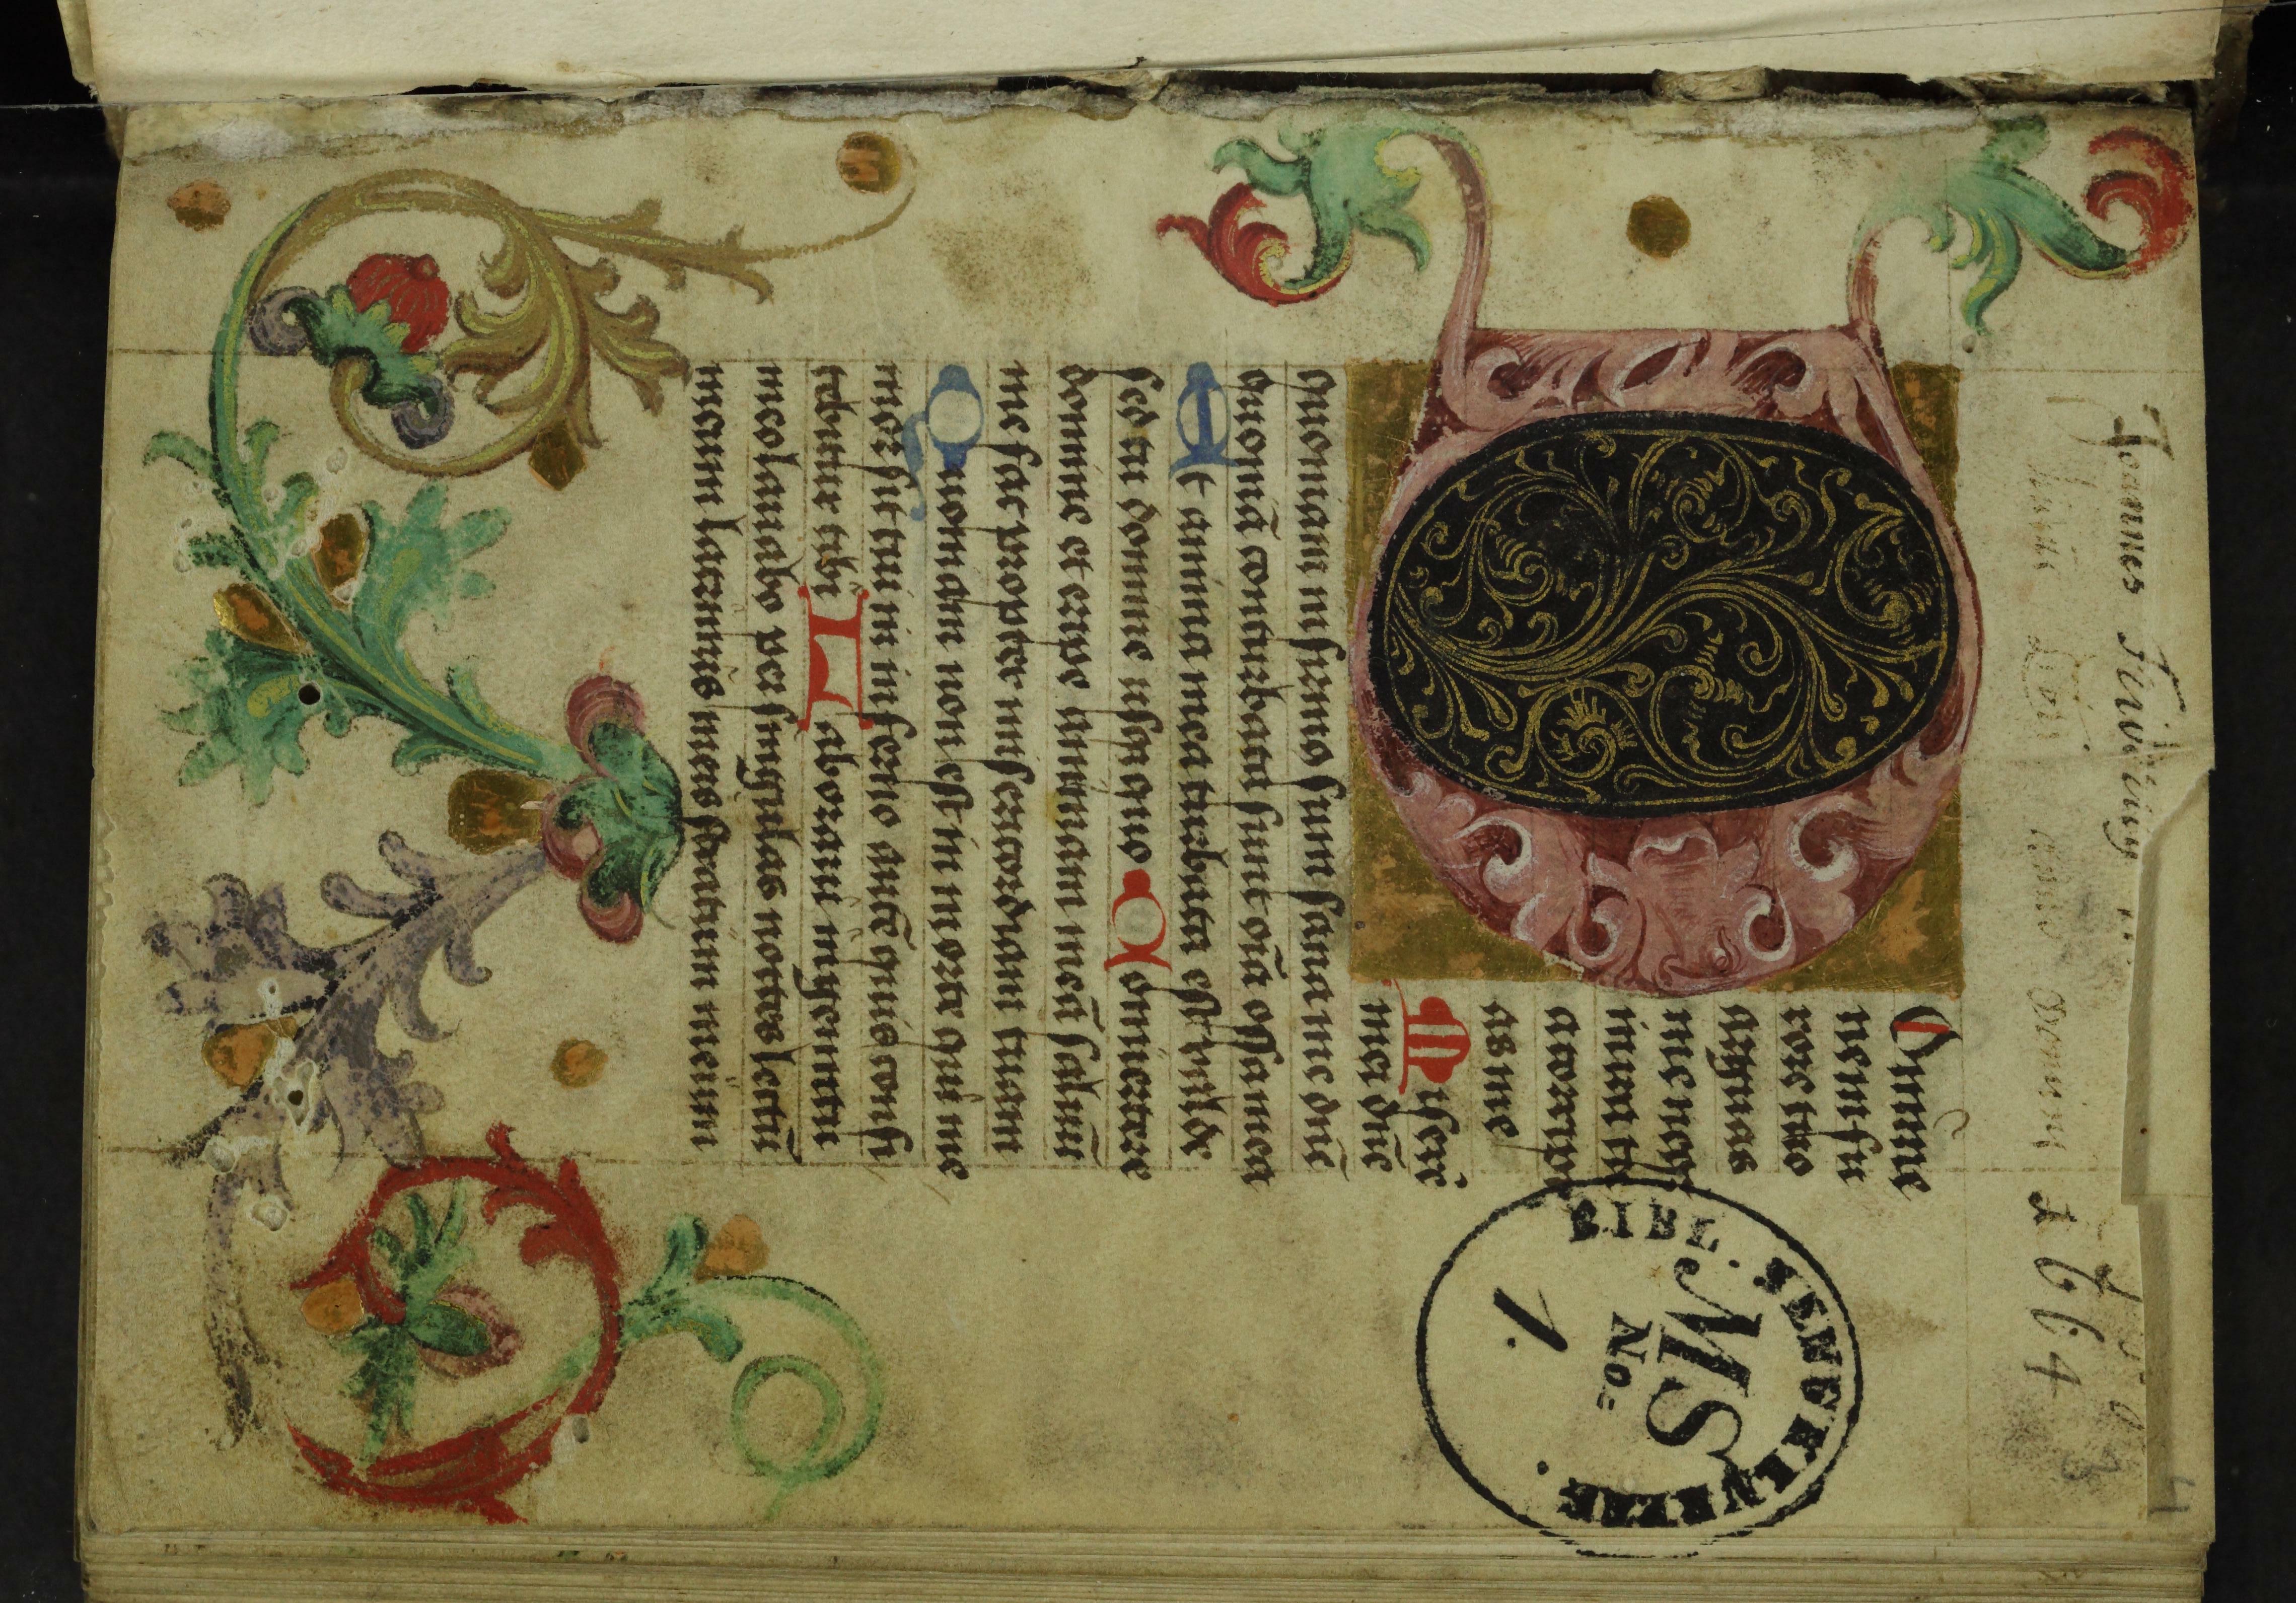 Joannes
Anno domini 1664
Domine
ne in fu
rore tuo
arguas
me neqʒ
in ira tu
a corripi
as me
Misere
mei dñe
quoniam infirmus sum sana me dñe
quoniā conturbata sunt oīa ossa mea
Et anima mea turbata est valde
sed tu domine usqquo Convertere
domine et eripe animam meā salvū
me fac propter misericordiam tuam
Quoniam non est in morte qui me
mor sit tui in inferno autē quis confi
tebitur tibi Laboravi in gemitu
meo lavabo per singulas noctes lectū
meum lacrimis meis stratum meum
BIBL. SENCKENBERG.
MS
No:
1.